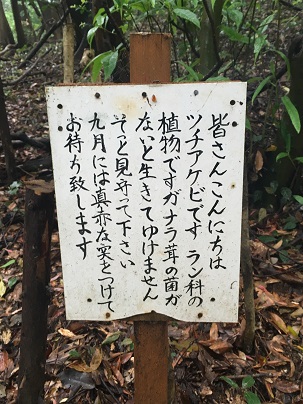 皆さんこんにちは
ツチアケビです ラン科の
植物ですがナラ茸の菌が
ないと生きてゆけません
そっと見守って下さい
九月には真赤な実をつけて
お待ち致します